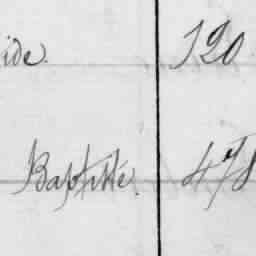 ide. 120
Baptiste. 478